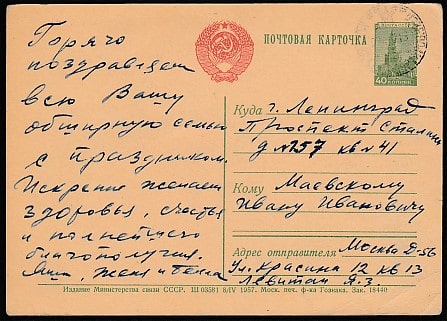 Горячо
поздравляем
всю Вашу
обширную семью
с праздником.
Искренне желаем
здоровья, счастья
и полнейшего
благополучия.
Женя и
ПОЧТОВАЯ КАРТОЧКА
40
Куда г. Ленинград
Проспект Сталина
д № 157 кв № 41
Кому Маевскому
Ивану Ивановичу
Адрес отправителя Москва Д-56
Ул. Красина 12 кв 13
Левитан Я.З.
Издание Министерства связи СССР. Ш 03581 8/IV 1957. Моск. печ. ф-ка Гознака. Зак. 18440